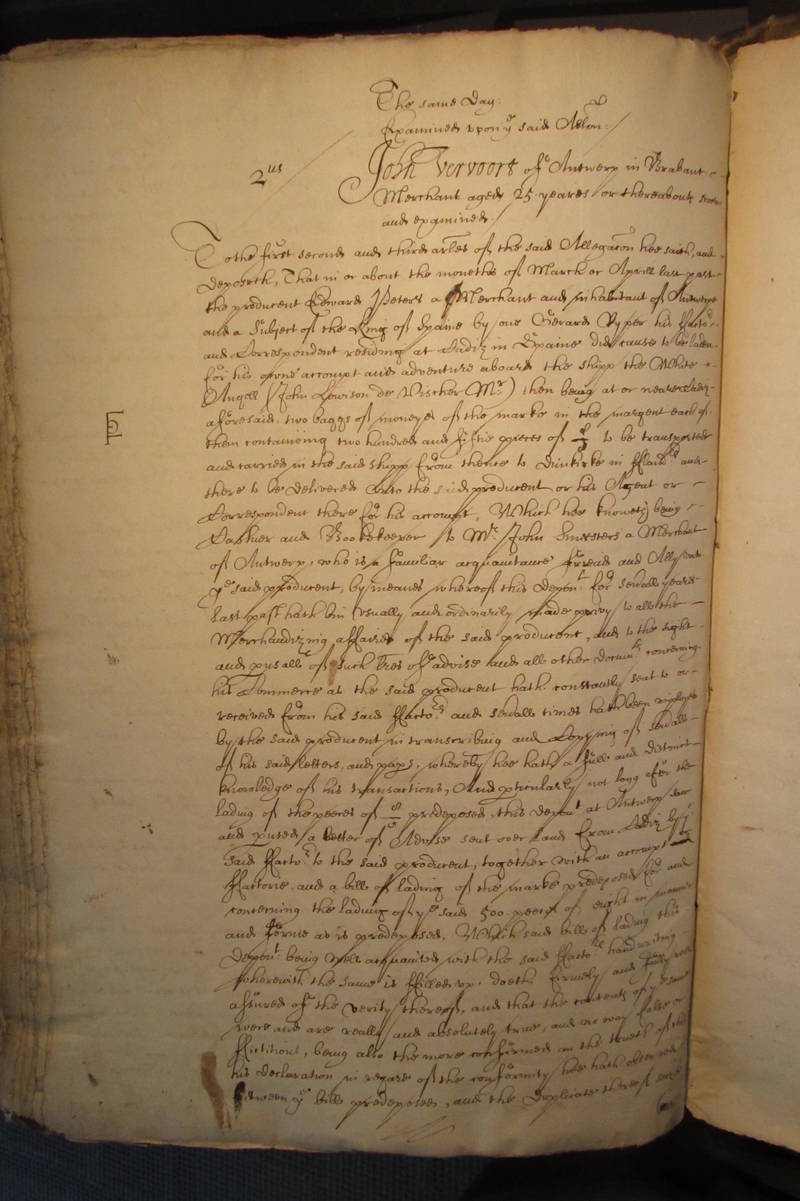 The same Day.
Examined upon ye said Allon:/
2us
John Vervoort of Antwerp in Brabant
Merchant aged 25 yeares or thereabouts sworne
and examined/
To the first second and third arles of the said Allegacon hee saith, and
deposeth, That in or about the moneths of March or Aprill last past
the producent Edward Peters a Merchant and inhabitant of Antwerpe
and a Subject of the King of Spaine by one Gerard Ryper his Factor
and Correspondent residing at Cadiz in Spaine did cause to be laden
for his owne accompt and adventure aboard the shipp the White
Angell (John Lowison de Visscher Mr) then being at or neare Cadiz
aforesaid, two baggs of moneyes of the marke in the margent each of
them contayning two hundred and fiftie pieces of 8 to be transported
and carried in the said shipp from thence to Dunkirke in Fland and
there to be delivered unto the said producent or his Agent or
Correspondent there for his accompt, Which hee knoweth being
Cashier and Bookekeeper to Mr John a Merchant
of Antwerp, who is a familiar acquaintance freind and Ally unto
ye said producent, by meanes whereof this Depont for severall yeares
last past hath bin usually and ordinarily made privy to all the
Merchandizing affaires of the said producent, and to the sight
and perusall of such Lres of advise and all other documts concerning
his Commerce as the said producent hath constantly sent to or
received from his said Factors and severall times hath been employed
by the said producent in transcribing and Coppying of severall
of his said letters and papers, whereby hee hath a full and distinct
knowledge of his transactions, And pticularly not long after the
lading of the peeces of 8 predeposed, this depont at Antwerp saw
and perused a letter of Advise sent over land from Cadiz by
said Factor to the said producent, together with an accompt
Factorie and a bill of lading of the marke predeposed for and
concerning the lading of ye said 500 peeces of eight in manner
and forme as is predeposed. Which said bill of lading this
Depont being well acquainted with the said Factors handwriting
wherewith the same is filled up doeth firmely and fully rest
assured of the verity thereof, and that the contents of ye same
were and are reall and absolutely true, and no way false or
fictitious, being also the more confirmed in the trueth of
his declaration in regard of the conformity hee hath observed
betweene ye bill predeposed, and the Duplicate thereof